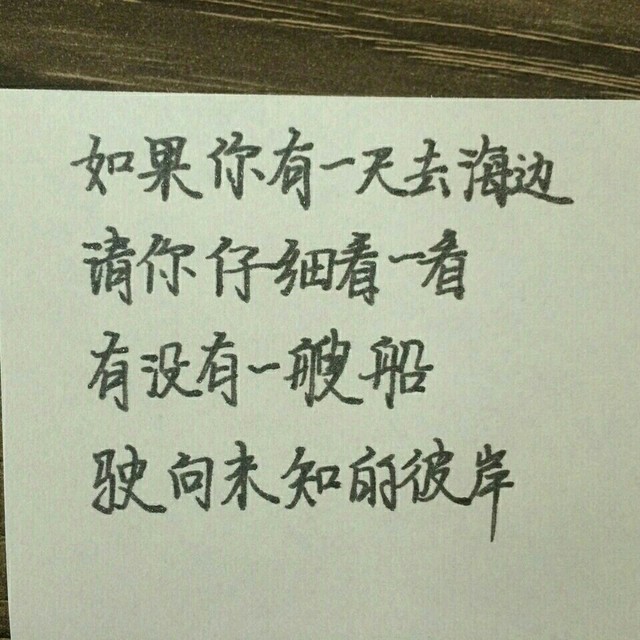 如果你有一天去海边
请你仔细看一看
有没有一艘船
驶向未知的彼岸